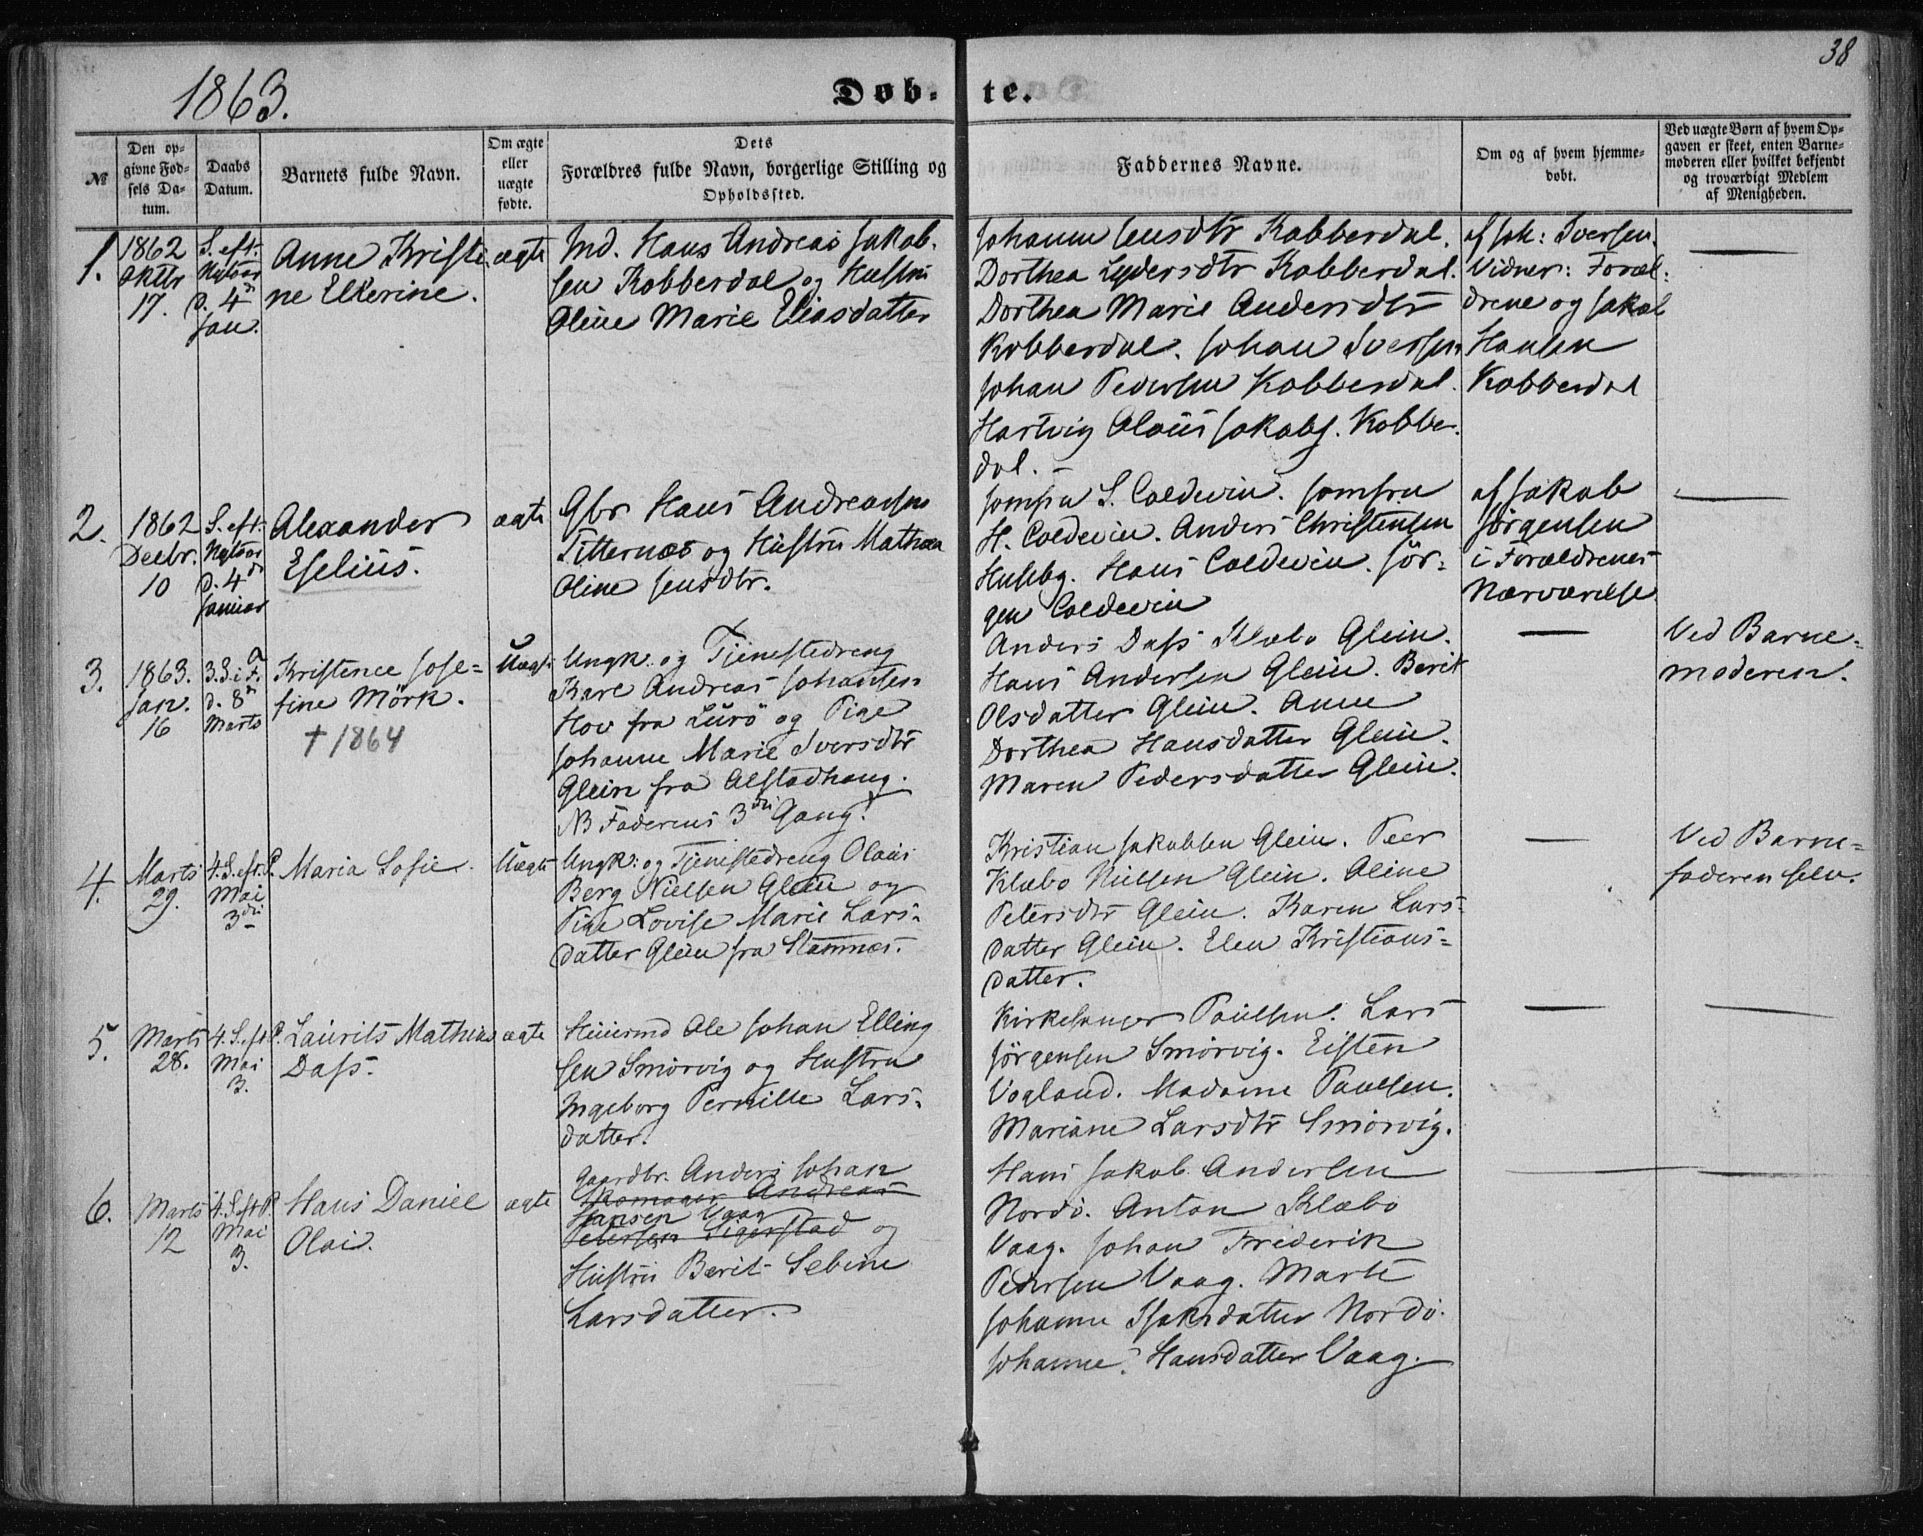 38
1863.
Døb- te.
№
Den op-
givne Fød-
sels Da-
tum.
Daabs
Datum.
Barnets fulde Navn.
Om ægte
eller
uægte
fødte.
Dets
Forældres fulde Navn, borgerlige Stilling og
Opholdssted.
Faddernes Navne.
Om og af hvem hjemme-
døbt.
Ved uægte Børn af hvem Op-
gaven er skeet, enten Barne-
moderen eller hvilket bekjendt
og troværdigt Medlem
af Menigheden.
1.
1862
Oktbr
17.
S. eft.
Nytaar
d. 4de
Jan.
Anne Kristi-
ne Elkerine.
ægte
Ind. Hans Andreas Jakob-
sen Kobberdal og Hustru
Oline Marie Eliasdatter
Johanne Jensdtr Kobberdal.
Dorthea Lydersdtr Kobberdal.
Dorthea Marie Andersdtr
Kobberdal. Johan Iversen
Johan Pedersen Kobberdal.
Hartvig Olaus Jakobs. Kobber-
dal.
af Joh: Iversen.
Vidner: Foræl-
drene og Jakob
Hansen
Kobberdal
2.
1862
Decbr.
10
S. eft.
Nytaar
d. 4de
Januar
Alexander
Eselius.
ægte
Gbr Hans Andreassen
Titternæs og Hustru Mathea
Oline Jensdtr.
Jomfru S. Coldevin. Jomfru
H. Coldevin. Anders Christensen
Husebg. Hans Coldevin. Jör-
gen Coldevin
af Jakob
Jörgensen
i Forældrenes
Nærværelse
3.
1863.
Jan.
16
3. S. i F.
d. 8de
Marts
Kristence Jose-
fine Mörk.
† 1864
Uægte
Ungk. og Tjenestedreng
Karl Andreas Johansen
Hov fra Lurö og Pige
Johanne Marie Iversdtr
Glein fra Alstadhaug.
NB Faderens 3die Gang!
Anders Dass Klæbo Glein.
Hans Andersen Glein. Berit
Olsdatter Glein. Anne
Dorthea Hansdatter Glein.
Maren Pedersdatter Glein.
Ved Barne-
moderen.
4.
Marts
29.
4. S. eft. P.
Mai
3die
Maria Sofie.
Uægte
Ungk: og Tjenestedreng Olaus
Berg Nielsen Glein og
Pige Lovise Marie Lars-
datter Glein fra Stamnes.
Kristian Jakobsen Glein. Peer
Klæbo Nielsen Glein. Oline
Petersdtr Glein. Karen Lars-
datter Glein. Elen Kristians-
datter.
Ved Barne-
faderen selv.
5.
Marts
28.
4. S. eft P.
Mai
3.
Laurits Mathias
Dass.
ægte
Huusmd Ole Johan Elling
sen Smörvig og Hustru
Ingeborg Pernille Lars-
datter.
Kirkesanger Paulsen. Lars
Jörgensen Smörvig. Eisten
Vogland. Madame Paulsen.
Mariane Larsdtr Smörvig.
6.
Marts
12
4. S. eft P.
Mai
3.
Hans Daniel
Olai.
ægte
Gaardbr. Anders Johan
Skomager Andreas
Hansen Vaag
Petersen Tigerstad og
Hustru Berit Sebine
Larsdatter.
Hans Jakob Andersen
Nordö. Anton Klæbo
Vaag. Johan Frederik
Pedersen Vaag. Marte
Johanne Isaksdatter Nordö.
Johanne Hansdatter Vaag.